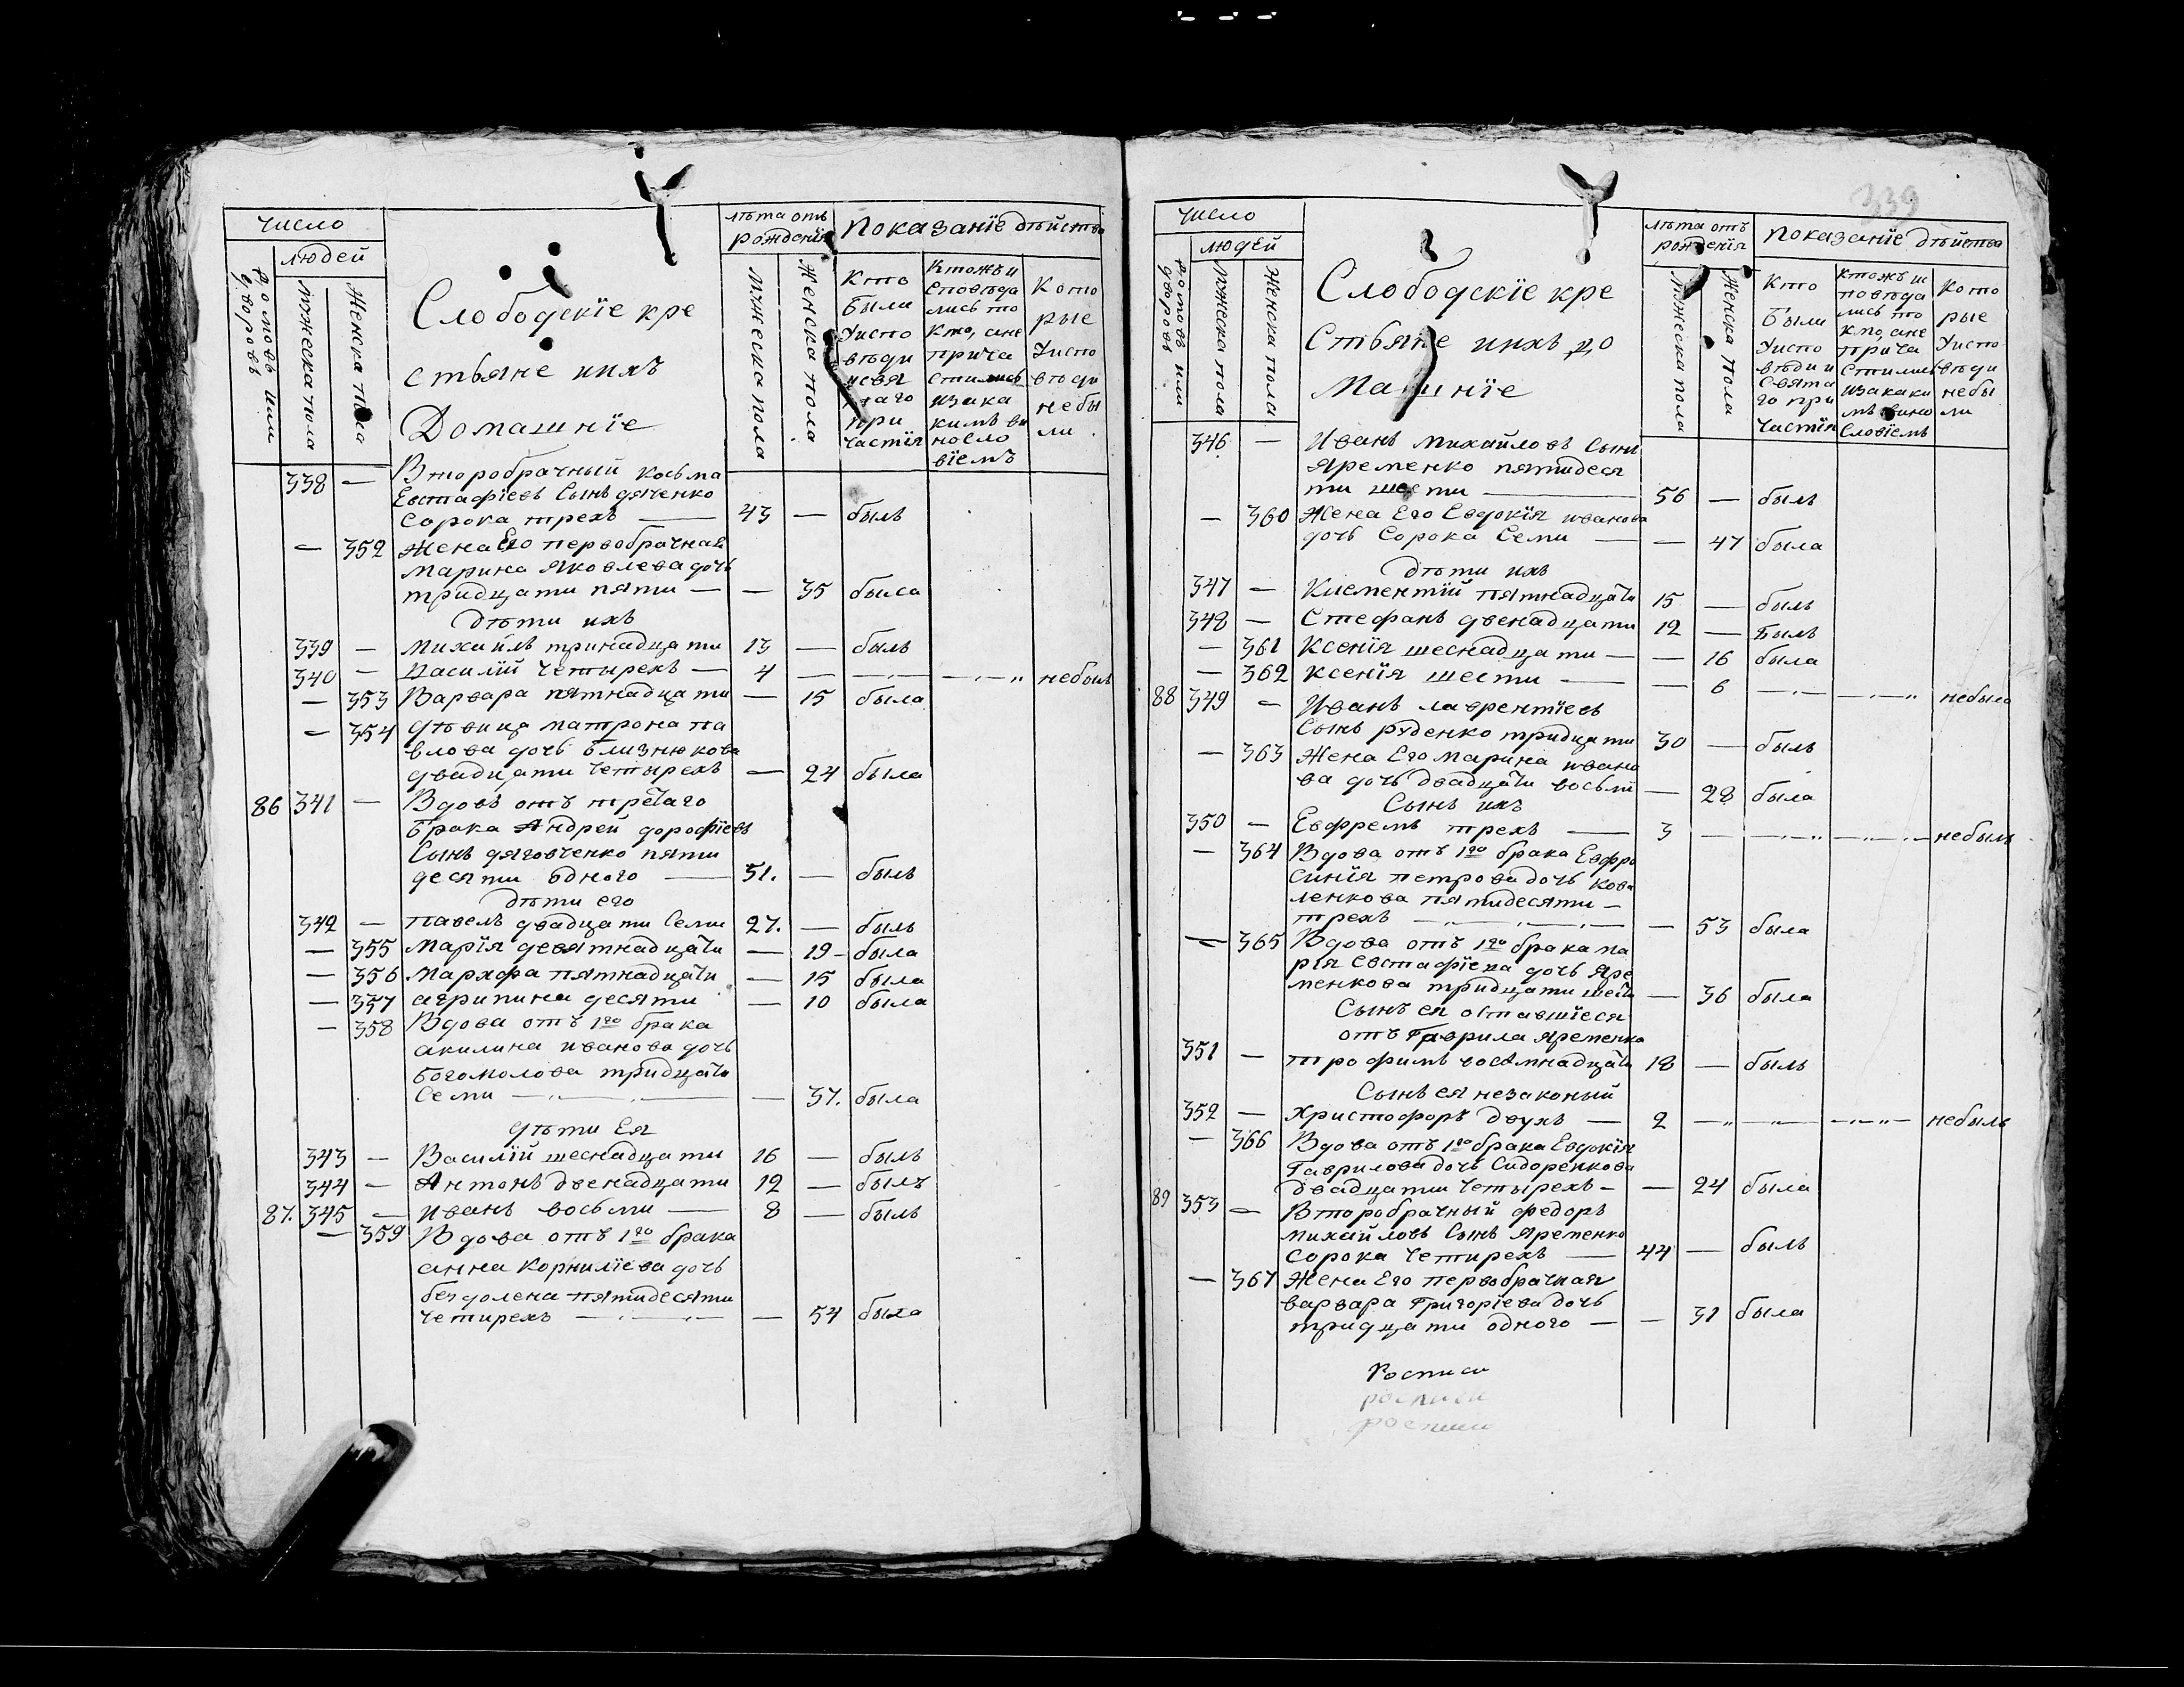 число
людей
домовъ или дворовъ
мѫжеска пола
Женска пола
Слободскїе кре
стьяне ихъ
Домашнїе
лѣта отъ
рожденїя
мѫжеска пола
Женска пола
Показанїе дѣйства
Кто
Были
Уиспо
вѣди
исвя
таго
при
частїя
Ктожъи
сповѣда
лись то
кмо, ане
прича
стились
изака
кимъ ви
носло
вїемъ
Кото
рые
Уиспо
вѣди
небы
ли
338 — Второбрачный Косьма
Евстафїевъ Сынъ дяченко
сорока трехъ — 43 — былъ
— 352 жена Его первобрачная
марина Яковлева дочь
тридцати пяти — — 35 была
Дѣти ихъ
339 — михаилъ тринадцати 13 — былъ
340 — Василїй четирехъ — 4 — — — небылъ
— 353 Варвара пятнадцати — 15 была
— 354 дѣвица матрона па
влова дочь близнюкова
двадцати четырехъ — 24 была
86 341 — Вдовъ отъ третаго
брака Андрей дорофїевъ
Сынъ дяговченко пяти
десяти одного — 51. — былъ
Дѣти его
342 — павелъ двадцати Семи 27. — былъ
— 355 марїя девятнадцати — 19 — была
— 356 марѳфа пятнадцати — 15 была
— 357 агрипина десяти — 10 была
— 358 Вдова отъ 1го брака
акилина иванова дочь
богомолова тридцати
Семи — — 37. была
дѣти Ея
343 — Василїй шеснадцати 16 — былъ
344 — Антонъ двенадцати 12 — былъ
87. 345 — иванъ восьми — 8 — былъ
— 359 Вдова отъ 1го брака
анна Корнилїева дочь
пятидесяти
четирехъ — — 54 была
339
число
людей
домовъ или дворовъ
мѫжеска пола
Женска пола
Слободскїе кре
Стьяне ихъ до
Машнїе
лѣта отъ
рожденїя
мѫжеска пола
Женска пола
Показанїе дѣйства
Кто
Были
Уиспо
вѣди и
Свята
го при
частїя
Ктожъ и
повѣда
лись то
кмо, ане
прича
стились
изакаки
мъ вино
словїемъ
Кото
рые
Уиспо
вѣди
небы
ли
346 — Иванъ михайловъ Сынъ
Яременко пятидеся
ти шести — 56 — былъ
— 360 Жена Его Евдокїя иванова
дочь Сорока Семи — — 47 была
Дѣти ихъ
347 — Клементїй пятнадцати 15 — былъ
348 — Стефанъ двенадцати 12 — Былъ
— 361 Ксенїя шеснадцати — — 16 была
— 362 Ксенїя шести — — 6 — — небыла
88 349 — Иванъ лаврентїевъ
Сынъ рѫденко тридцати 30 — былъ
— 363 Жена Его марина ивано
ва дочь двадцати восьми — 28 была
Сынъ ихъ
350 — Евфремъ трехъ — 3 — — — небылъ
— 364 Вдова отъ 1го брака Евфро
синїя петрова дочь кова
ленкова пятидесяти —
трехъ — — 53 была
— 365 Вдова отъ 1го брака ма
рїя Евстафїева дочь Яре
менкова тридцати шести — 36 была
Сынъ ея оставшїеся
отъ Гаврила Яременка
351 — трофимъ восемнадцати 18 — былъ
Сынъ ея незаконый
352 — Христофоръ двухъ — 2 — — — небылъ
— 366 Вдова отъ 1го брака Евдокїя
Гаврилова дочь Сидоренкова
двадцати четырехъ — — 24 была
89 353 — Второбрачный федоръ
михайловъ Сынъ Яременко
Сорока четирехъ — 44 — былъ
— 367 Жена Его первобрачная
варвара Григорїева дочь
тридцати одного — — 31 была
Росписи
росписи
росписи